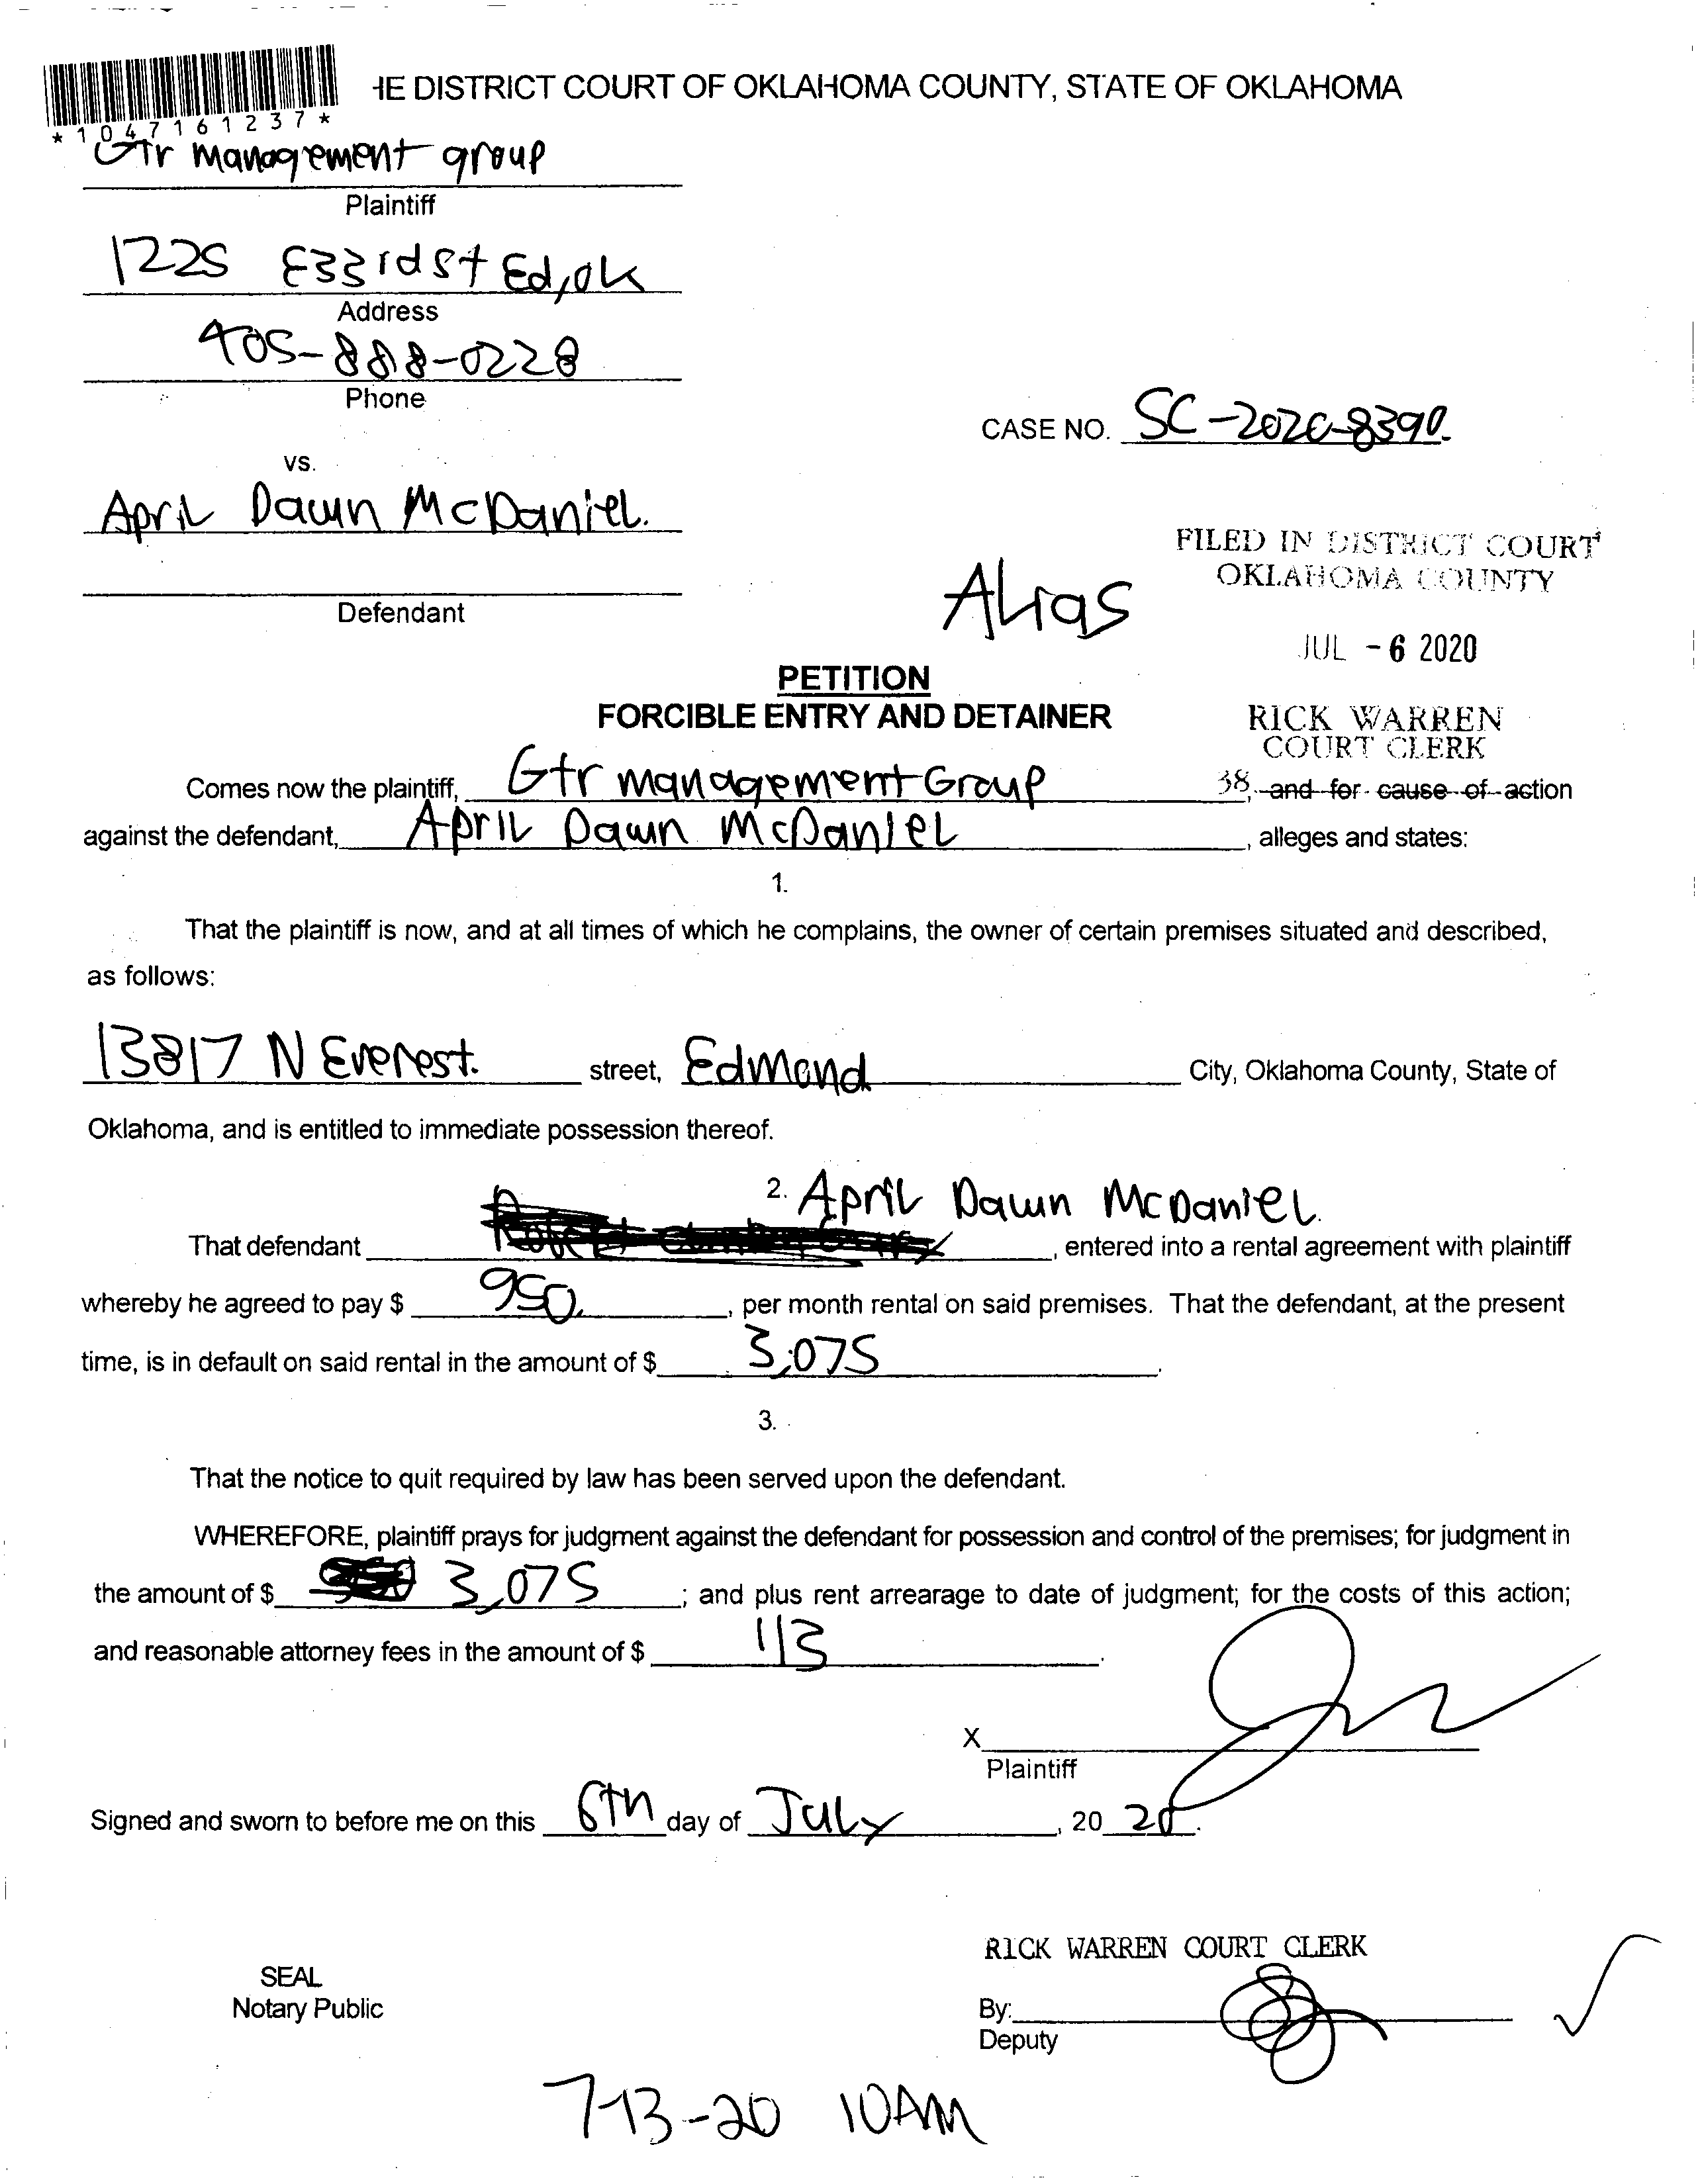 *1047161237*
HE DISTRICT COURT OF OKLAHOMA COUNTY, STATE OF OKLAHOMA
Gtr management group
Plaintiff
1225 E33rd St Ed, OK
Address
405-888-0228
Phone
CASE NO. SC-2020-8390
vs.
April Dawn McDaniel.
FILED IN DISTRICT COURT
OKLAHOMA COUNTY
Defendant
Alias
JUL - 6 2020
PETITION
FORCIBLE ENTRY AND DETAINER
RICK WARREN
COURT CLERK
Comes now the plaintiff, Gtr management Group 38, and for cause of action
against the defendant, April Dawn McDaniel, alleges and states:
1.
That the plaintiff is now, and at all times of which he complains, the owner of certain premises situated and described,
as follows:
13817 N Everest. street, Edmond City, Oklahoma County, State of
Oklahoma, and is entitled to immediate possession thereof.
2. April Dawn McDaniel.
That defendant , entered into a rental agreement with plaintiff
whereby he agreed to pay $ 950, per month rental on said premises. That the defendant, at the present
time, is in default on said rental in the amount of $ 3,075.
3.
That the notice to quit required by law has been served upon the defendant.
WHEREFORE, plaintiff prays for judgment against the defendant for possession and control of the premises; for judgment in
the amount of $ 3,075; and plus rent arrearage to date of judgment; for the costs of this action;
and reasonable attorney fees in the amount of $ 113.
X
Plaintiff
Signed and sworn to before me on this 6th day of July, 20 20.
RICK WARREN COURT CLERK
SEAL
Notary Public
By:
Deputy
7-13-20 10AM